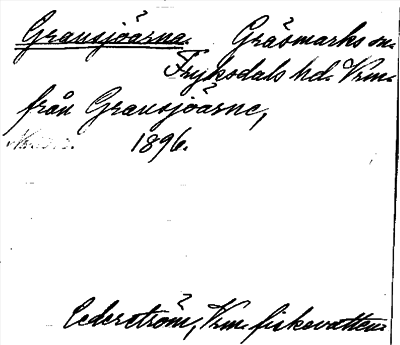 Gransjöärna. Gräsmarks sn.
Fryksdals hd. Vrm.
från Gransjöärne,
1896.
Cederström, Vrm. fiskevatten.